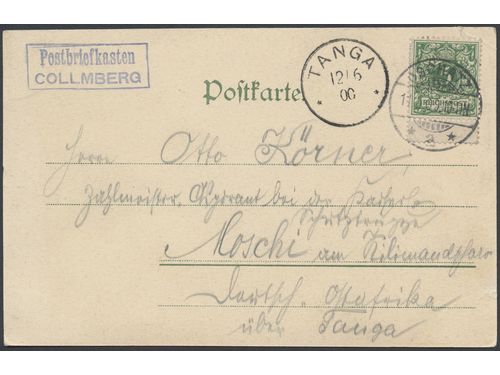 Postbriefkasten
COLLMBERG
TANGA
12/6
00
Postkarte
REICHSPOST
a
Herrn Otto Körner,
Zahlmeister-Aspirant bei der Kaiserl.
Schutztruppe
Moschi am Kilimandjharo
Deutsch-Ostafrika
über Tanga